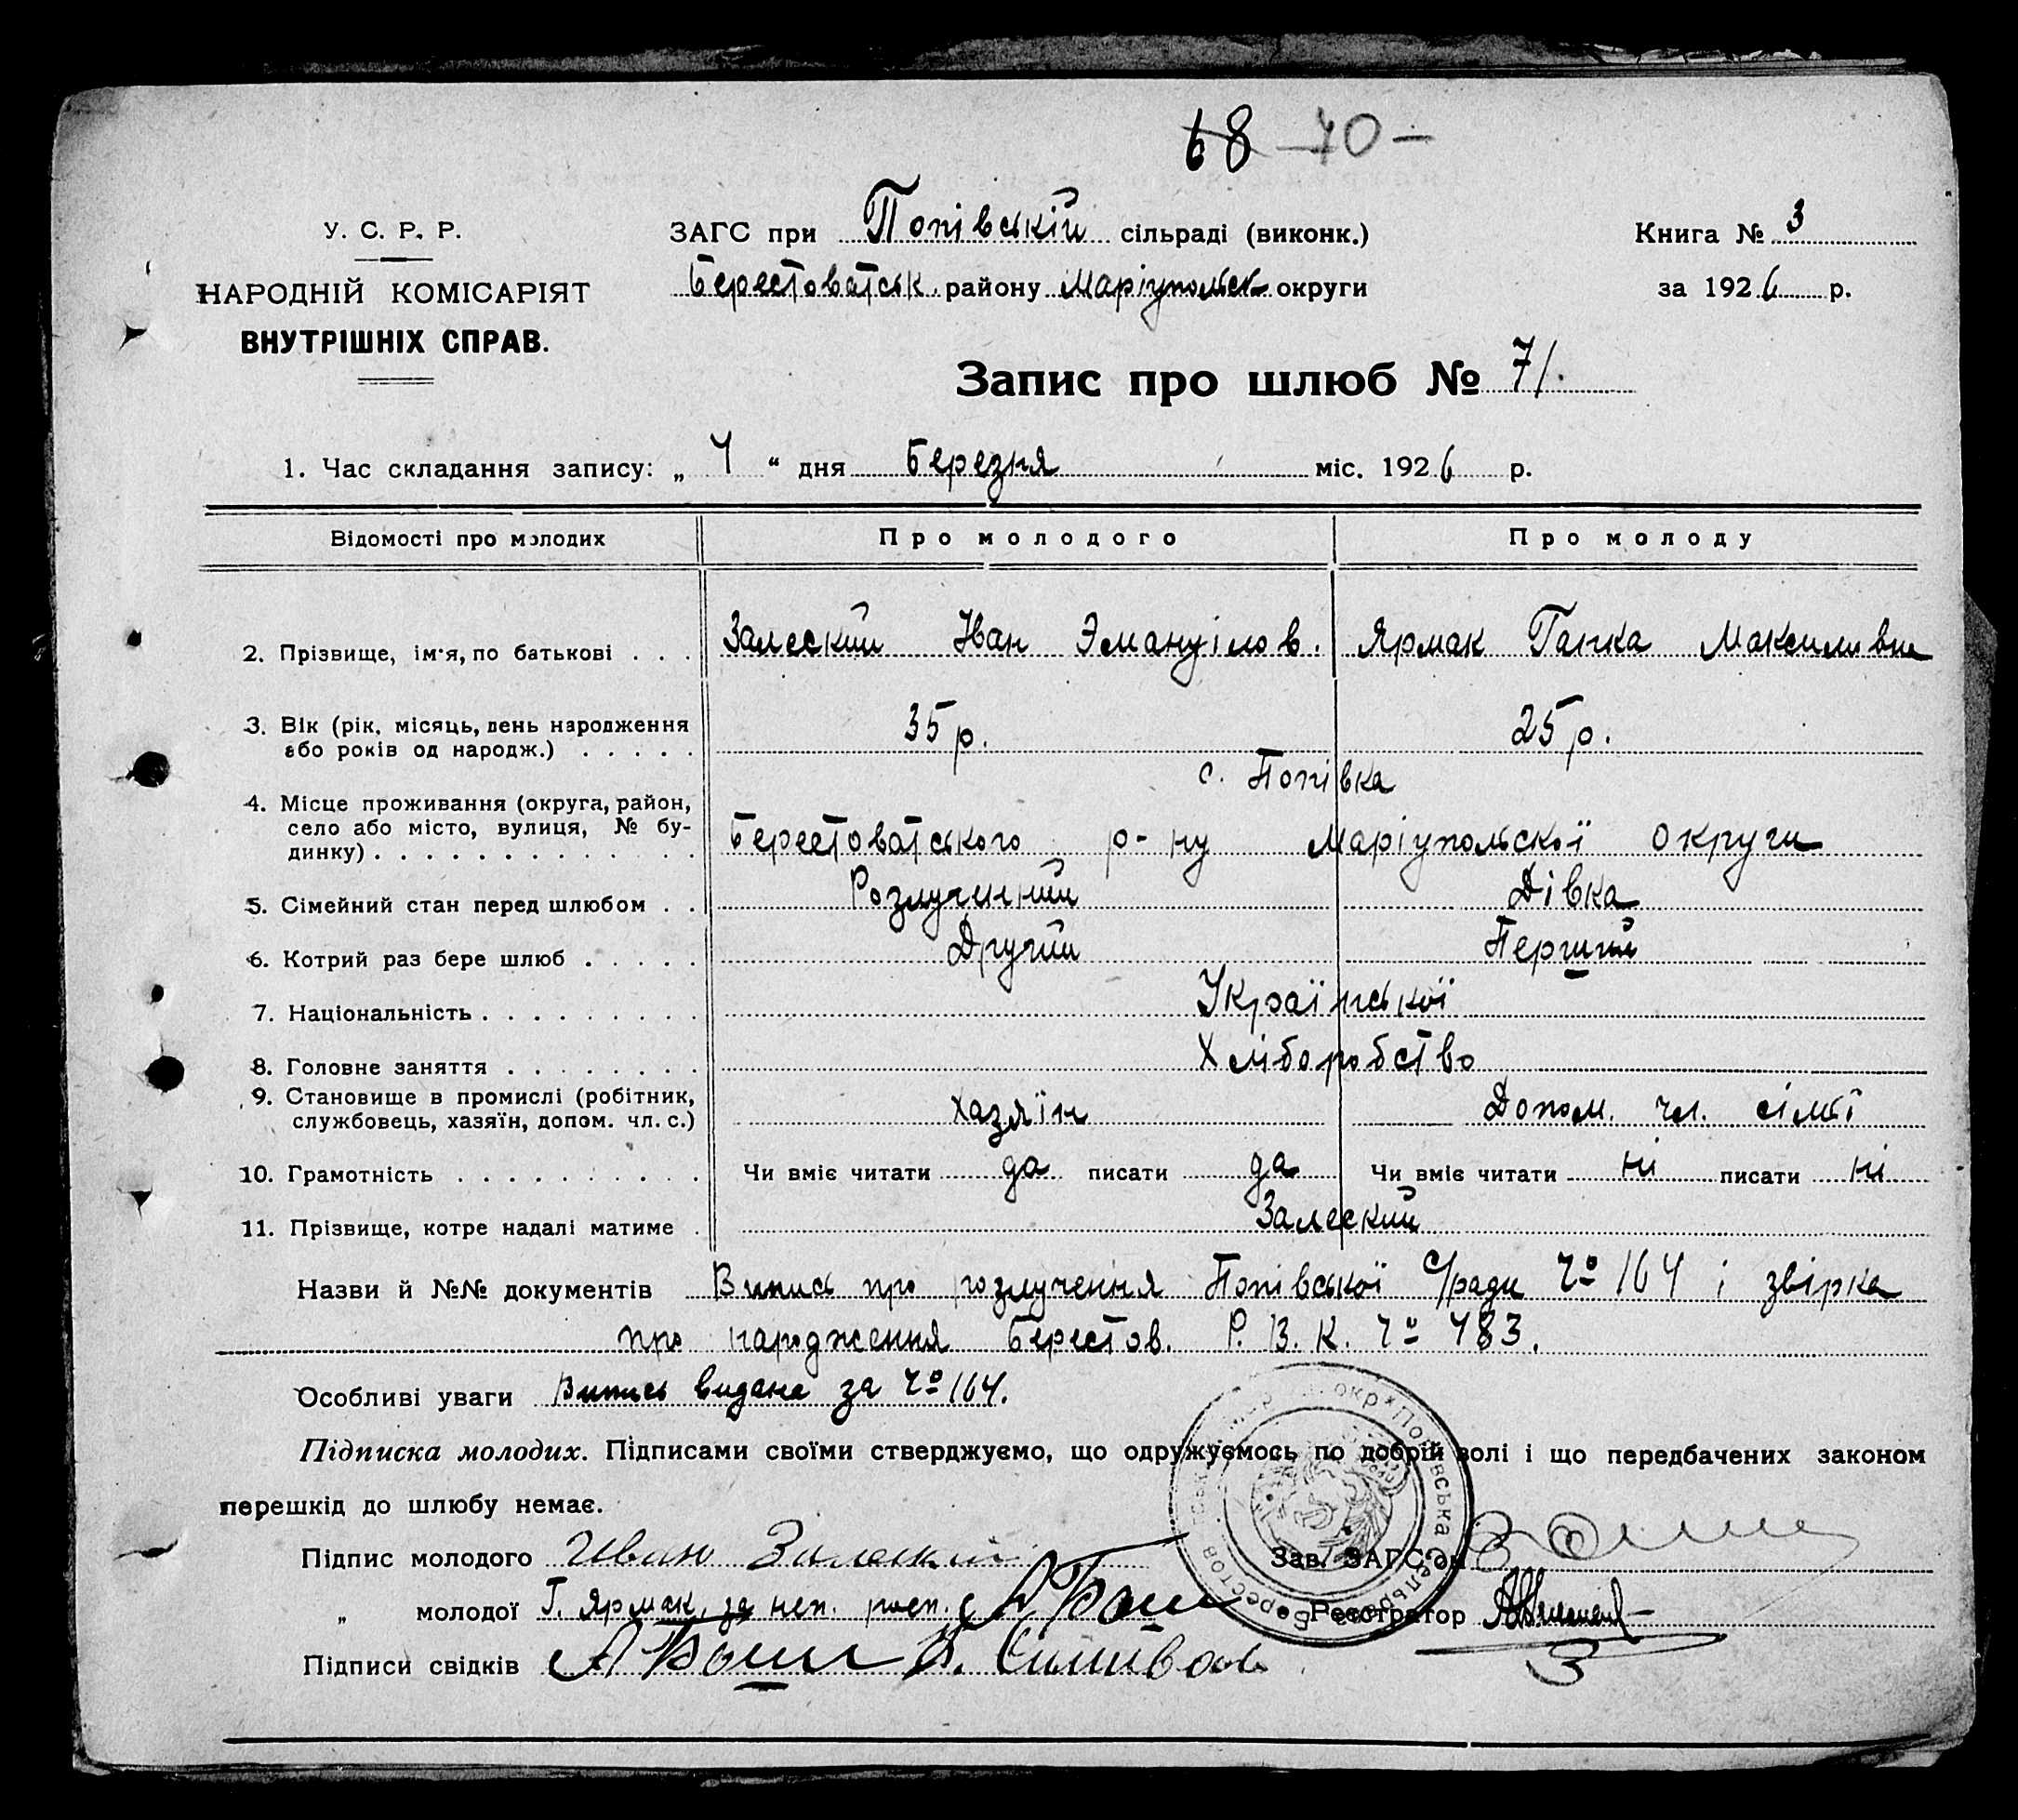 68 70 -
У. С. Р. Р.
НАРОДНІЙ КОМІСАРІЯТ
ВНУТРІШНІХ СПРАВ.
ЗАГС при Попівській сільраді (виконк.)
Берестоватськ. району Маріупольск округи
Книга № 3
за 1926 р.
Запис про шлюб № 71.
1. Час складання запису: „ 4 “ дня Березня міс. 1926 р.
Відомості про молодих Про молодого Про молоду
2. Прізвище, ім'я, по батькові . . . Залеский Іван Эмануілов. Ярмак Гапка Максимовна
3. Вік (рік, місяць, день народження або років од народж.) . . . . . 35 р. 25 р.
с. Попівка
4. Місце проживання (округа, район, село або місто, вулиця, № будинку) . . . Берестоватського р-ну Маріупольскої округи
5. Сімейний стан перед шлюбом . . Розлучений Дівка
6. Котрий раз бере шлюб . . . . . Другий Перший
7. Національність . . . . . . . . . Української
8. Головне заняття . . . . . . . . Хліборобство
9. Становище в промислі (робітник, службовець, хазяїн, допом. чл. с.) Хазяїн Допом. чл. сімї
10. Грамотність . . . . . . . . . . Чи вміє читати да писати да Чи вміє читати ні писати ні
11. Прізвище, котре надалі матиме . Залеский
Назви й №№ документів Випись про розлучення Попівської с/ради Ч° 164 і звірка
про народження Берестов. Р. В. К. Ч° 483.
Особливі уваги Випись видана за Ч° 164.
Підписка молодих. Підписами своїми стверджуємо, що одружуємось по добрій волі і що передбачених законом
перешкід до шлюбу немає.
Підпис молодого Иван Залеский Зав. ЗАГС'ом
„ молодої Г. Ярмак, за неп. росп. Реєстратор
Підписи свідків